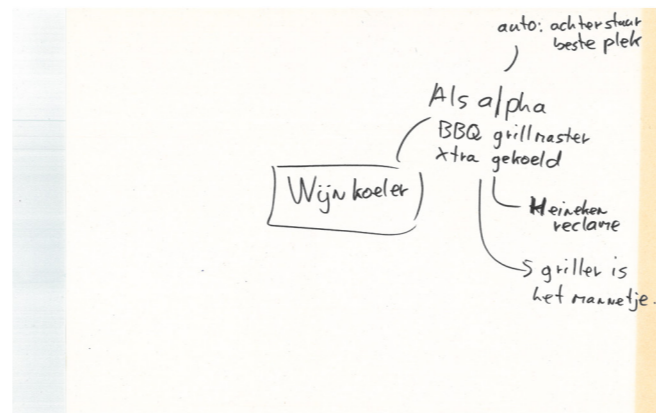 auto: achter stuur
beste plek
Als alpha
BBQ grillmaster
Xtra gekoeld
Wijnkoeler
Heineken
reclame
griller is
het mannetje.